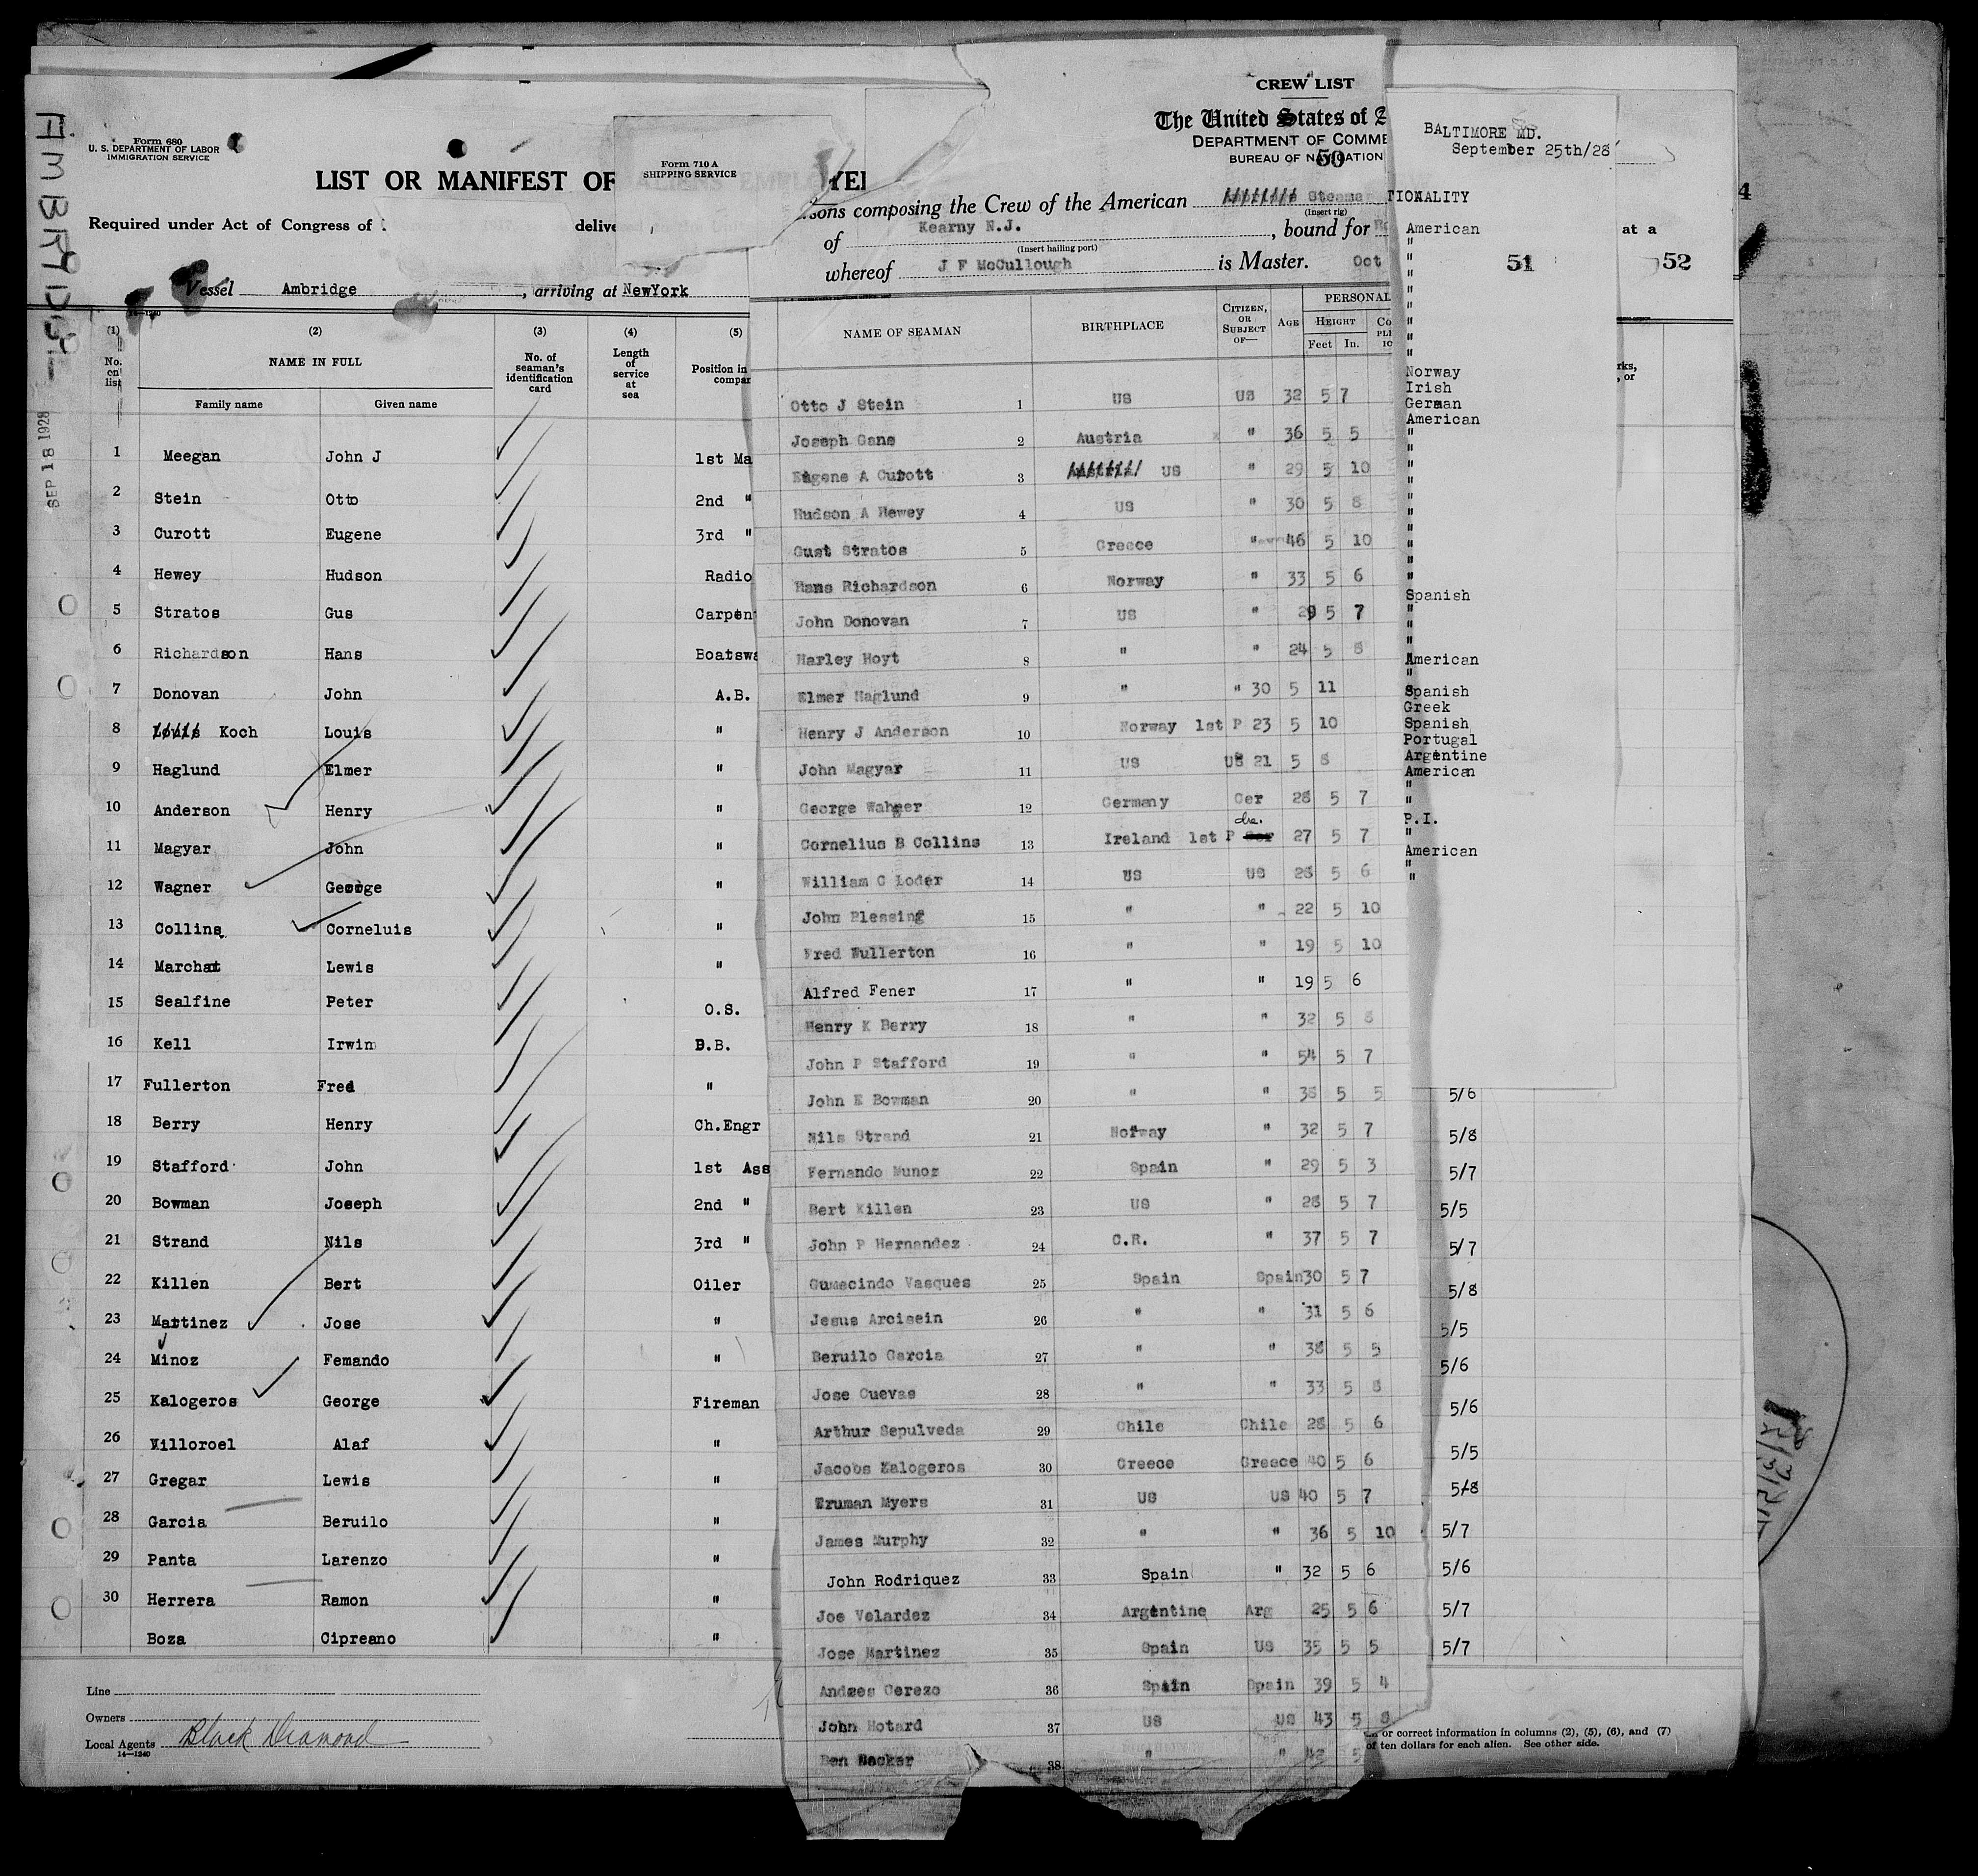 AMBRIDGE
SEP 18 1928
Form 680
U. S. DEPARTMENT OF LABOR
IMMIGRATION SERVICE
LIST OR MANIFEST OF
Required under Act of Congress of
delive
Vessel Ambridge , arriving at NewYork
14-1240
(1) (2) (3) (4) (5)
No. on list
NAME IN FULL
Family name Given name
No. of seaman's identification card
Length of service at sea
Position in
compar
1 Meegan John J 1st Ma
2 Stein Otto 2nd "
3 Curott Eugene 3rd "
4 Hewey Hudson Radio
5 Stratos Gus Carpen
6 Richardson Hans Boatswa
7 Donovan John A.B.
8 Louis Koch Louis "
9 Haglund Elmer "
10 Anderson Henry "
11 Magyar John "
12 Wagner George "
13 Collins Corneluis "
14 Marchat Lewis "
15 Sealfine Peter O.S.
16 Kell Irwin D.B.
17 Fullerton Fred "
18 Berry Henry Ch.Engr
19 Stafford John 1st Ass
20 Bowman Joseph 2nd "
21 Strand Nils 3rd "
22 Killen Bert Oiler
23 Martinez Jose "
24 Minoz Femando "
25 Kalogeros George Fireman
26 Villoroel Alaf "
27 Gregar Lewis "
28 Garcia Beruilo "
29 Panta Larenzo "
30 Herrera Ramon "
Boza Cipreano "
Line
Owners
Local Agents Black Diamond
14-1240
Form 710 A
SHIPPING SERVICE
YEI
CREW LIST
The United States of A
DEPARTMENT OF COMME
BUREAU OF NAVIGATION
50
sons composing the Crew of the American Steamer
(Insert rig)
of Kearny N.J. , bound for
(Insert hailing port)
whereof J F McCullough is Master. Oct
NAME OF SEAMAN
BIRTHPLACE
CITIZEN, OR SUBJECT OF—
AGE
PERSONAL
HEIGHT
Feet In.
Otto J Stein 1 US US 32 5 7
Joseph Gans 2 Austria " 36 5 5
Eugene A Curott 3 US " 29 5 10
Hudson A Hewey 4 US " 30 5 8
Gust Stratos 5 Greece " 46 5 10
Hans Richardson 6 Norway " 33 5 6
John Donovan 7 US " 29 5 7
Harley Hoyt 8 " " 24 5 8
Elmer Haglund 9 " " 30 5 11
Henry J Anderson 10 Norway 1st P 23 5 10
John Magyar 11 US US 21 5 8
George Wagner 12 Germany Ger 28 5 7
Cornelius B Collins 13 Ireland 1st P 27 5 7
William C Loder 14 US US 28 5 6
John Blessing 15 " " 22 5 10
Fred Wullerton 16 " " 19 5 10
Alfred Fener 17 " " 19 5 6
Henry K Berry 18 " " 32 5 8
John P Stafford 19 " " 54 5 7
John E Bowman 20 " " 38 5 5
Nils Strand 21 Norway " 32 5 7
Fernando Munoz 22 Spain " 29 5 3
Bert Killen 23 US " 28 5 7
John P Hernandez 24 C.R. " 37 5 7
Gumecindo Vasques 25 Spain Spain 30 5 7
Jesus Arcisein 26 " " 31 5 6
Beruilo Garcia 27 " " 38 5 5
Jose Cuevas 28 " " 33 5 8
Arthur Sepulveda 29 Chile Chile 28 5 6
Jacobs Kalogeros 30 Greece Greece 40 5 6
Truman Myers 31 US US 40 5 7
James Murphy 32 " " 36 5 10
John Rodriquez 33 Spain " 32 5 6
Joe Velardez 34 Argentine Arg 25 5 6
Jose Martinez 35 Spain US 35 5 5
Andres Cerezo 36 Spain Spain 39 5 4
John Hotard 37 US US 43 5 8
Ben Backer 38 " " 42 5
BALTIMORE MD.
September 25th/28
TIONALITY
American
"
"
"
"
"
"
"
"
Norway
Irish
German
American
"
"
"
"
"
"
"
"
"
"
Spanish
"
"
"
American
"
Spanish
Greek
Spanish
Portugal
Argentine
American
"
"
P.I.
"
American
"
"
51
at a
52
4
rks,
, or
5/6
5/8
5/7
5/5
5/7
5/8
5/5
5/6
5/6
5/5
5/8
5/7
5/6
5/7
5/7
or correct information in columns (2), (5), (6), and (7)
of ten dollars for each alien. See other side.